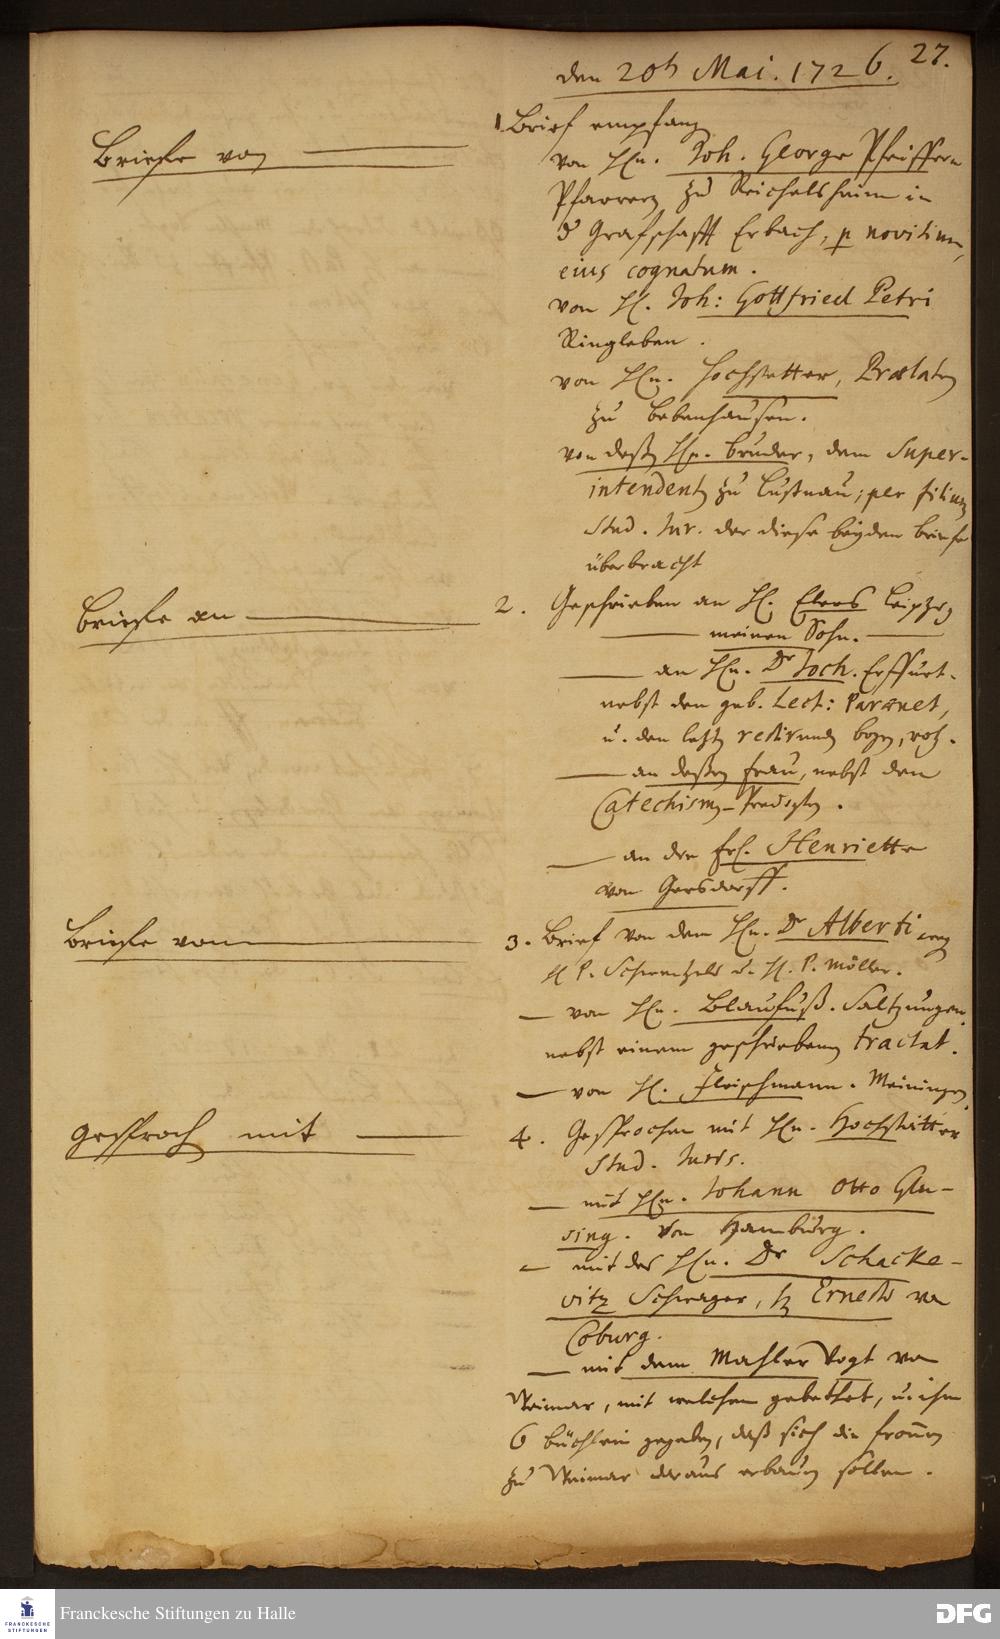 27.
den 20t Mai. 1726.
Briefe von
1 Brief empfang
von Hn. Joh. George Pfeiffern
Pfarrern zu Reichelsheim in
d Grafschafft Erbach, p novitium,
eius cognatum.
von H. Joh: Gottfried Petri
Ringleben.
von Hn. Hochstetter, Prælaten
zu Bebenhausen.
von deßen Hn. Bruder, dem Super-
intendenten zu Lustnau; per filium
Stud. Jur. der diese beyden briefe
überbracht
Briefe an
2. Geschrieben an H. Elers Leipzig
meinen Sohn.
an Hn. Dr Joch. Erffurt.
nebst den geb. Lect: Parænet,
u. den letzten
an deßen Frau, nebst den
Catechismus-Predigten.
an die Frl. Henriette
von Gersdorff.
Briefe von
3. Brief von dem Hn. Dr Alberti
H P. u. H. P. Möller.
von Hn. Blaufuß. Saltzungen.
nebst einem geschriebenen tractat.
von H. Fleischmann. Meiningen.
Gesproch mit
4. Gesprochen mit Hn. Hochstetter
Stud. Juris.
mit Hn. Johann Otto Glü-
sing. von Hamburg.
mit des Hn. Dr Schacke-
vitz Schwager, H Ernesto von
Coburg.
mit dem Mahler Vogt von
Weimar, mit welchem gebethet, u. ihm
6 büchlein gegeben, daß sich die frommen
zu Weimar daraus erbauen sollen.
FRANCKESCHE
STIFTUNGEN
Franckesche Stiftungen zu Halle
DFG